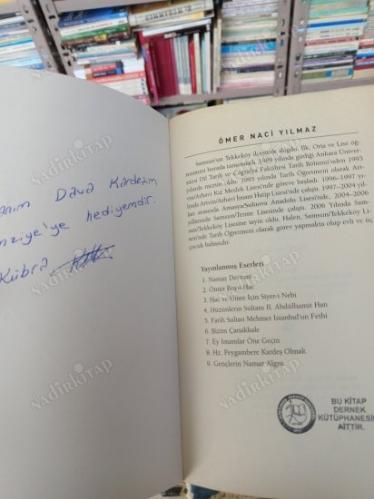 Dava Kardeşim
hediyemdir.
Kübra
ÖMER NACİ YILMAZ
Samsun'un Tekkeköy ilçesinde doğdu. İlk, Orta ve Lise öğ-
renimini burada tamamladı. 1989 yılında girdiği Ankara Üniver-
sitesi Dil Tarih ve Coğrafya Fakültesi Tarih Bölümü'nden 1993
yılında mezun oldu. 1995 yılında Tarih Öğretmeni olarak
Artvin/Arhavi Kız Meslek Lisesi'nde göreve başladı. 1996-1997 yılın-
da Artvin/Arhavi İmam Hatip Lisesi'nde çalıştı. 1997-2004 yıl-
ları arasında Amasya/Suluova Anadolu Lisesi'nde, 2004-2006
yıllarında Samsun/Terme Lisesinde çalıştı. 2006 Yılında Sam-
sun/Tekkeköy Lisesine tayin oldu. Halen, Samsun/Tekkeköy
Lisesi'nde Tarih Öğretmeni olarak görev yapmakta olup evli ve üç
çocuk babasıdır.
Yayınlanmış Eserleri
1. Namaz Devrimi
2. Ömür Boyu Hac
3. Hac ve Umre İçin Siyer-i Nebi
4. Hüzünlerin Sultanı II. Abdulhamit Han
5. Fatih Sultan Mehmet İstanbul'un Fethi
6. Bizim Çanakkale
7. Ey İmanlar Öne Geçin
8. Hz. Peygambere Kardeş Olmak
9. Gençlerin Namaz Algısı
BU KİTAP
DERNEK
KÜTÜPHANESİNE
AİTTİR.
NADİRKİTAP